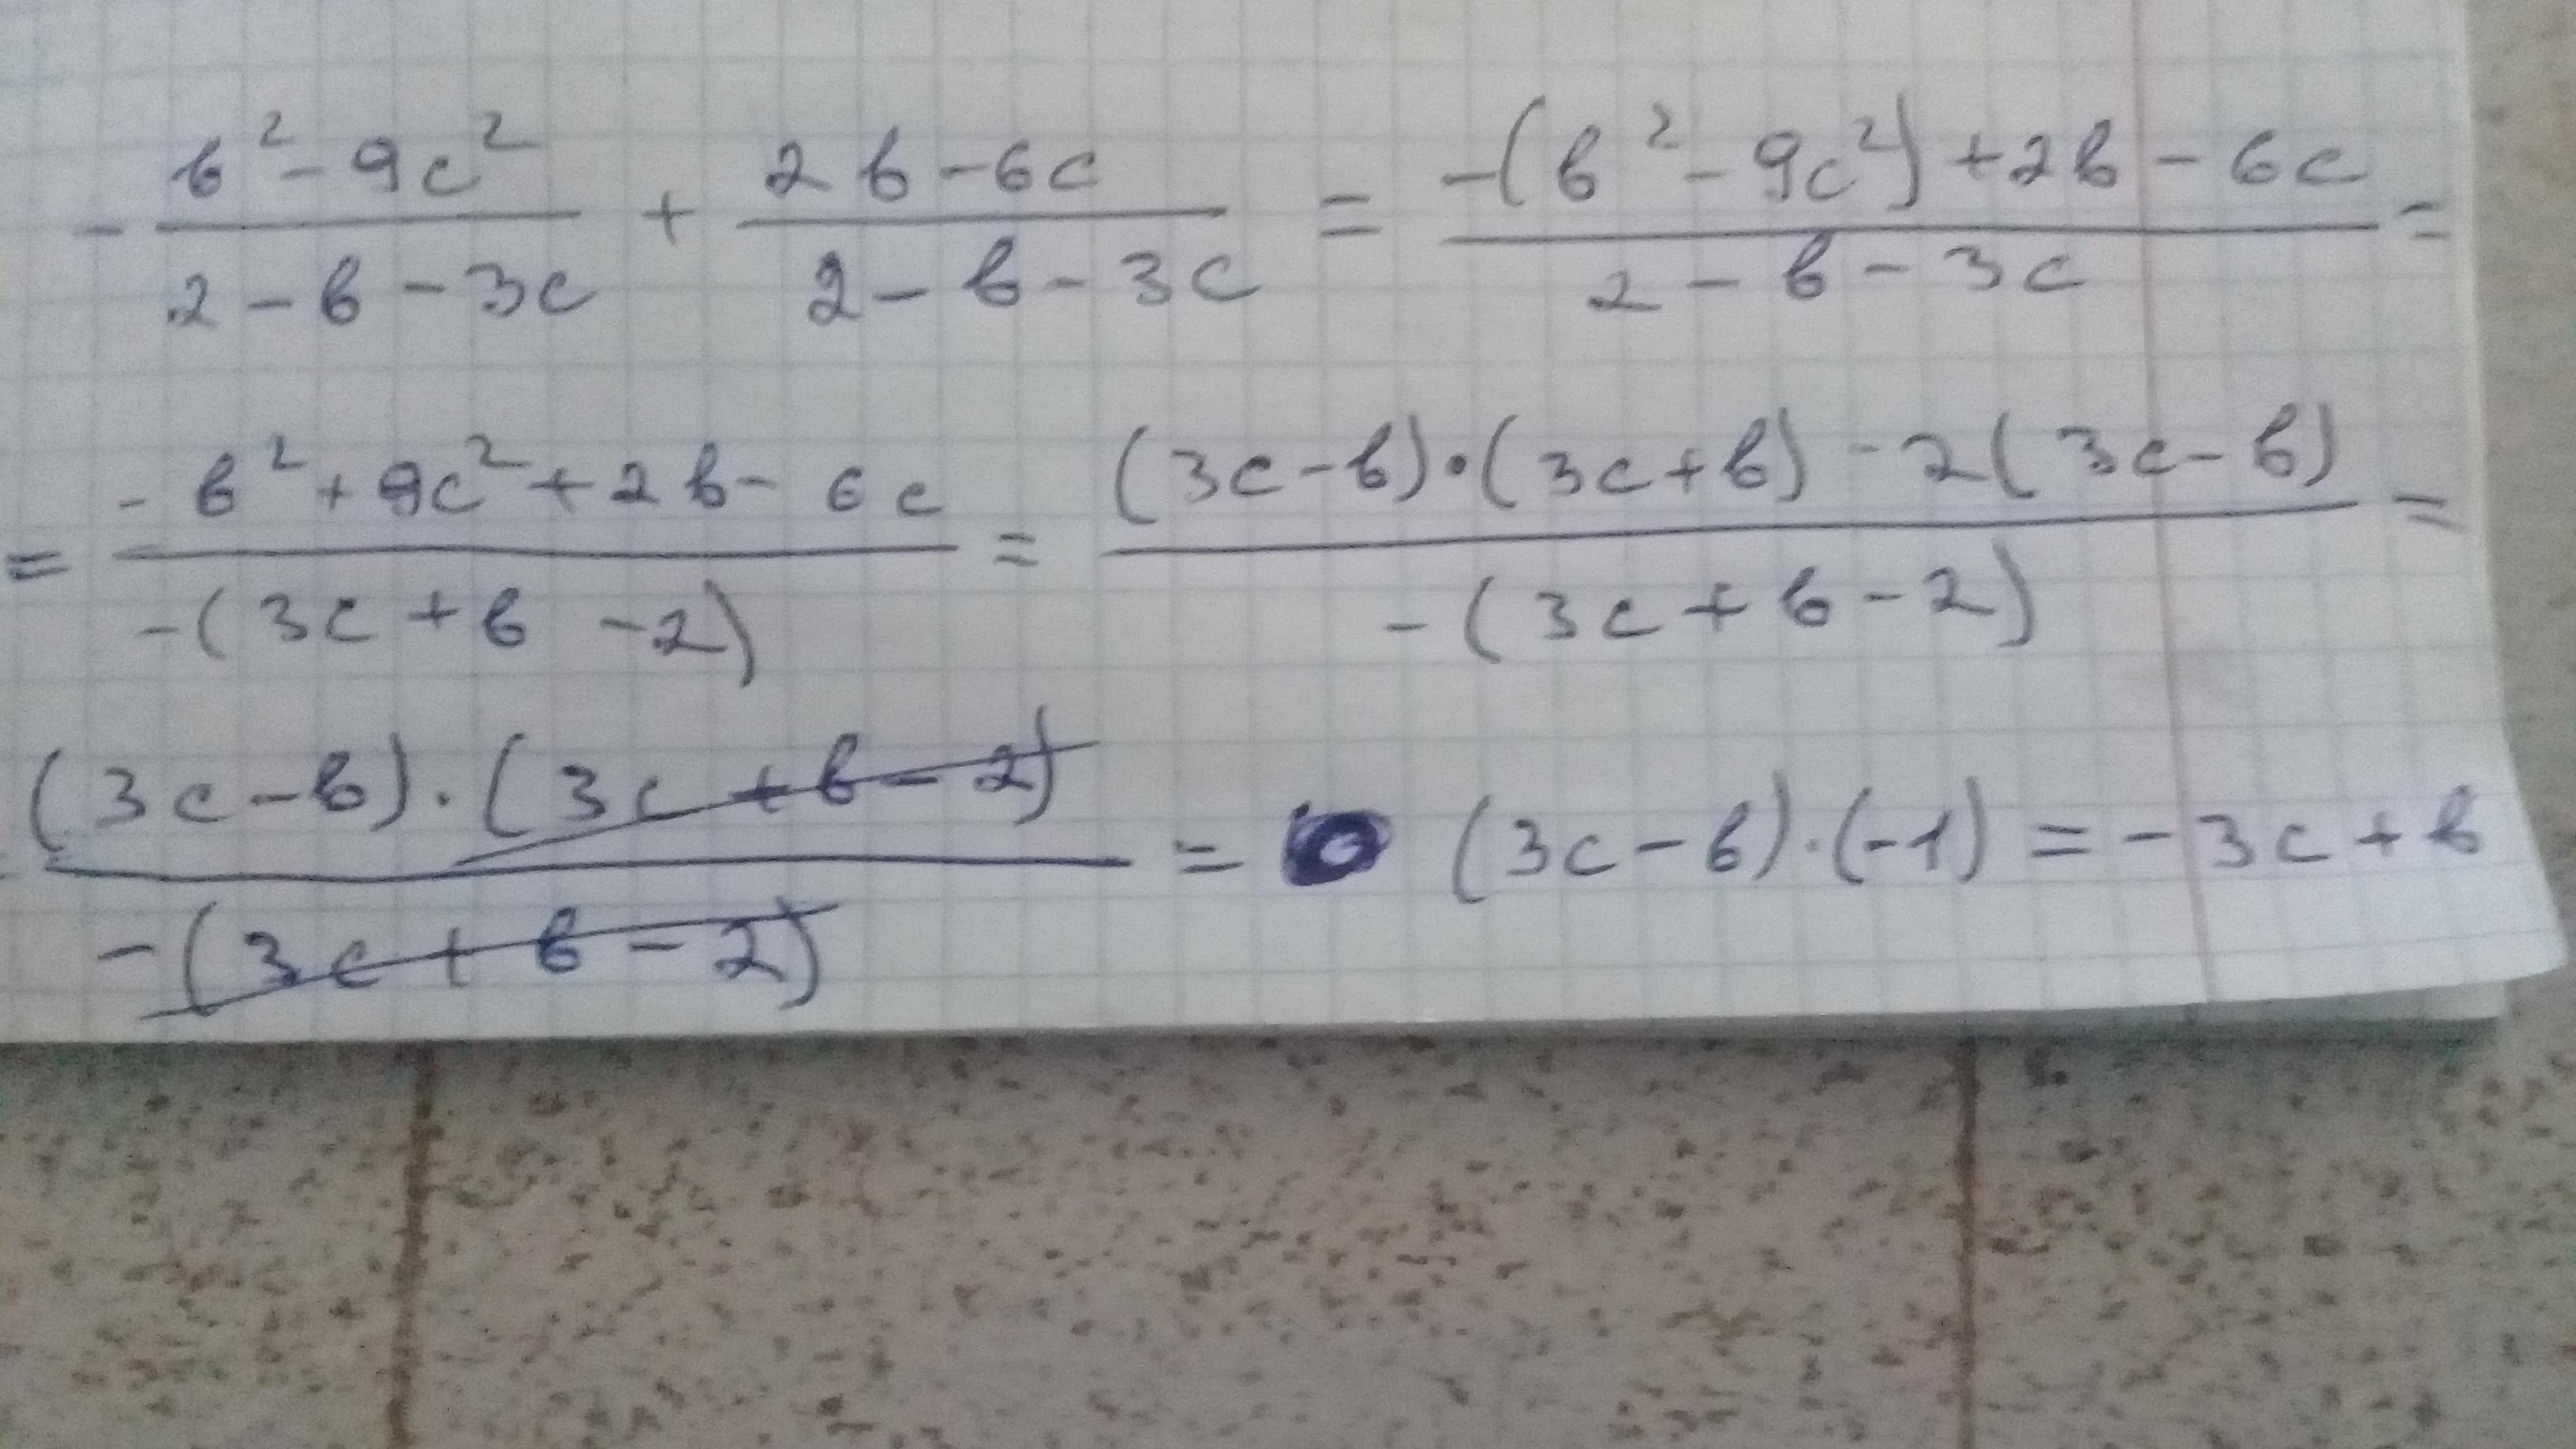 - (b² - 9c²)/(2 - b - 3c) + (2b - 6c)/(2 - b - 3c) = (-(b² - 9c²) + 2b - 6c)/(2 - b - 3c) =
= (-b² + 9c² + 2b - 6c)/(-(3c + b - 2)) = ((3c - b)·(3c + b) - 2(3c - b))/(-(3c + b - 2)) =
((3c - b)·(3c + b - 2))/(-(3c + b - 2)) = (3c - b)·(-1) = -3c + b